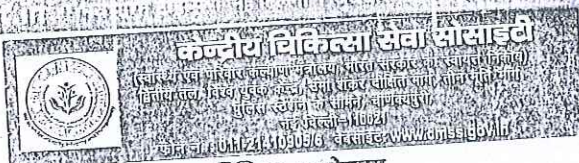 केन्द्रीय चिकित्सा सेवा सोसाइटी
(स्वास्थ्य एवं परिवार कल्याण मंत्रालय, भारत सरकार का स्वायत्त निकाय)
(द्वितीय तल, विश्व युवक केन्द्र, उमा शंकर दीक्षित मार्ग, तीन मूर्ति मार्ग)
पुलिस स्टेशन के सामने, चाणक्यपुरी,
नई दिल्ली – 110021
फोन नं.: 011-21410905/6 वेबसाइट: www.cmss.gov.in